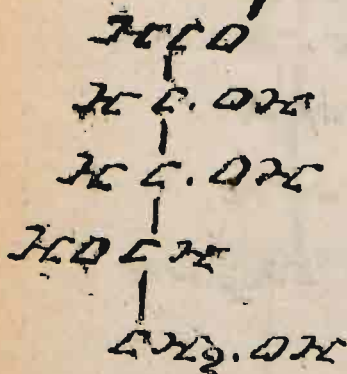 HCO
HC.OH
HC.OH
HOCH
CH2.OH